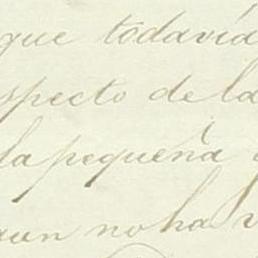 que todavía
specto de la
la pequeña
aun no ha